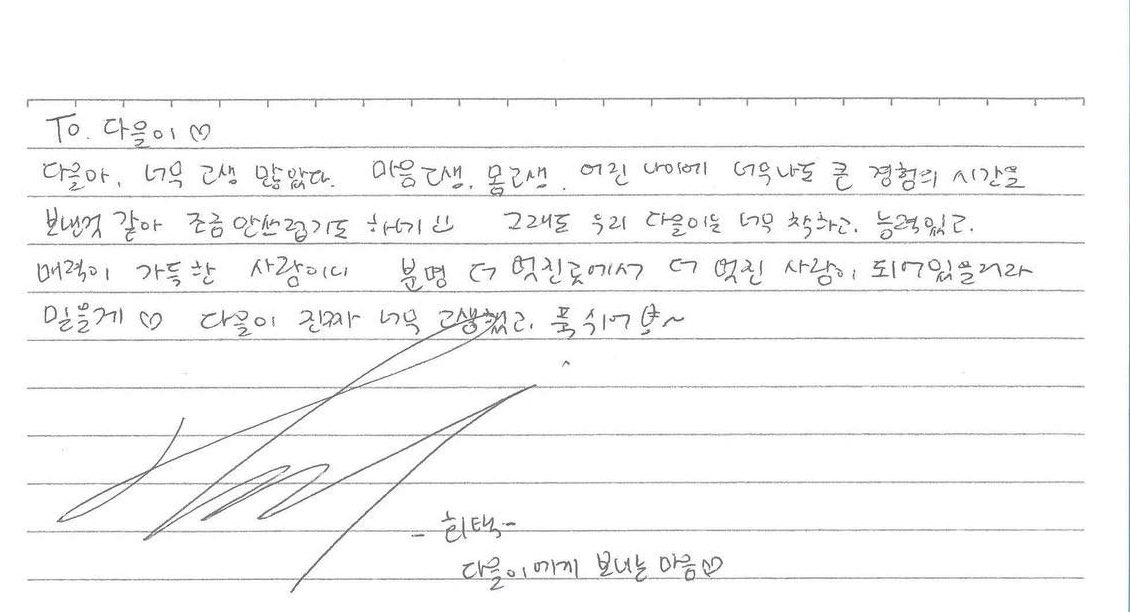 To. 다을이♡
다을아, 너무 고생 많았다. 마음고생, 몸고생. 어린 나이에 너무나도 큰 경험의 시간을
보낸것 같아 조금 안쓰럽기도 하네 그래도 우리 다을이는 너무 착하고, 능력있고,
매력이 가득한 사람이니 분명 더 멋진곳에서 더 멋진 사람이 되어있을거라
믿을게♡ 다을이 진짜 너무 고생했고, 푹 쉬어
-희택-
다을이에게 보내는 마음♡